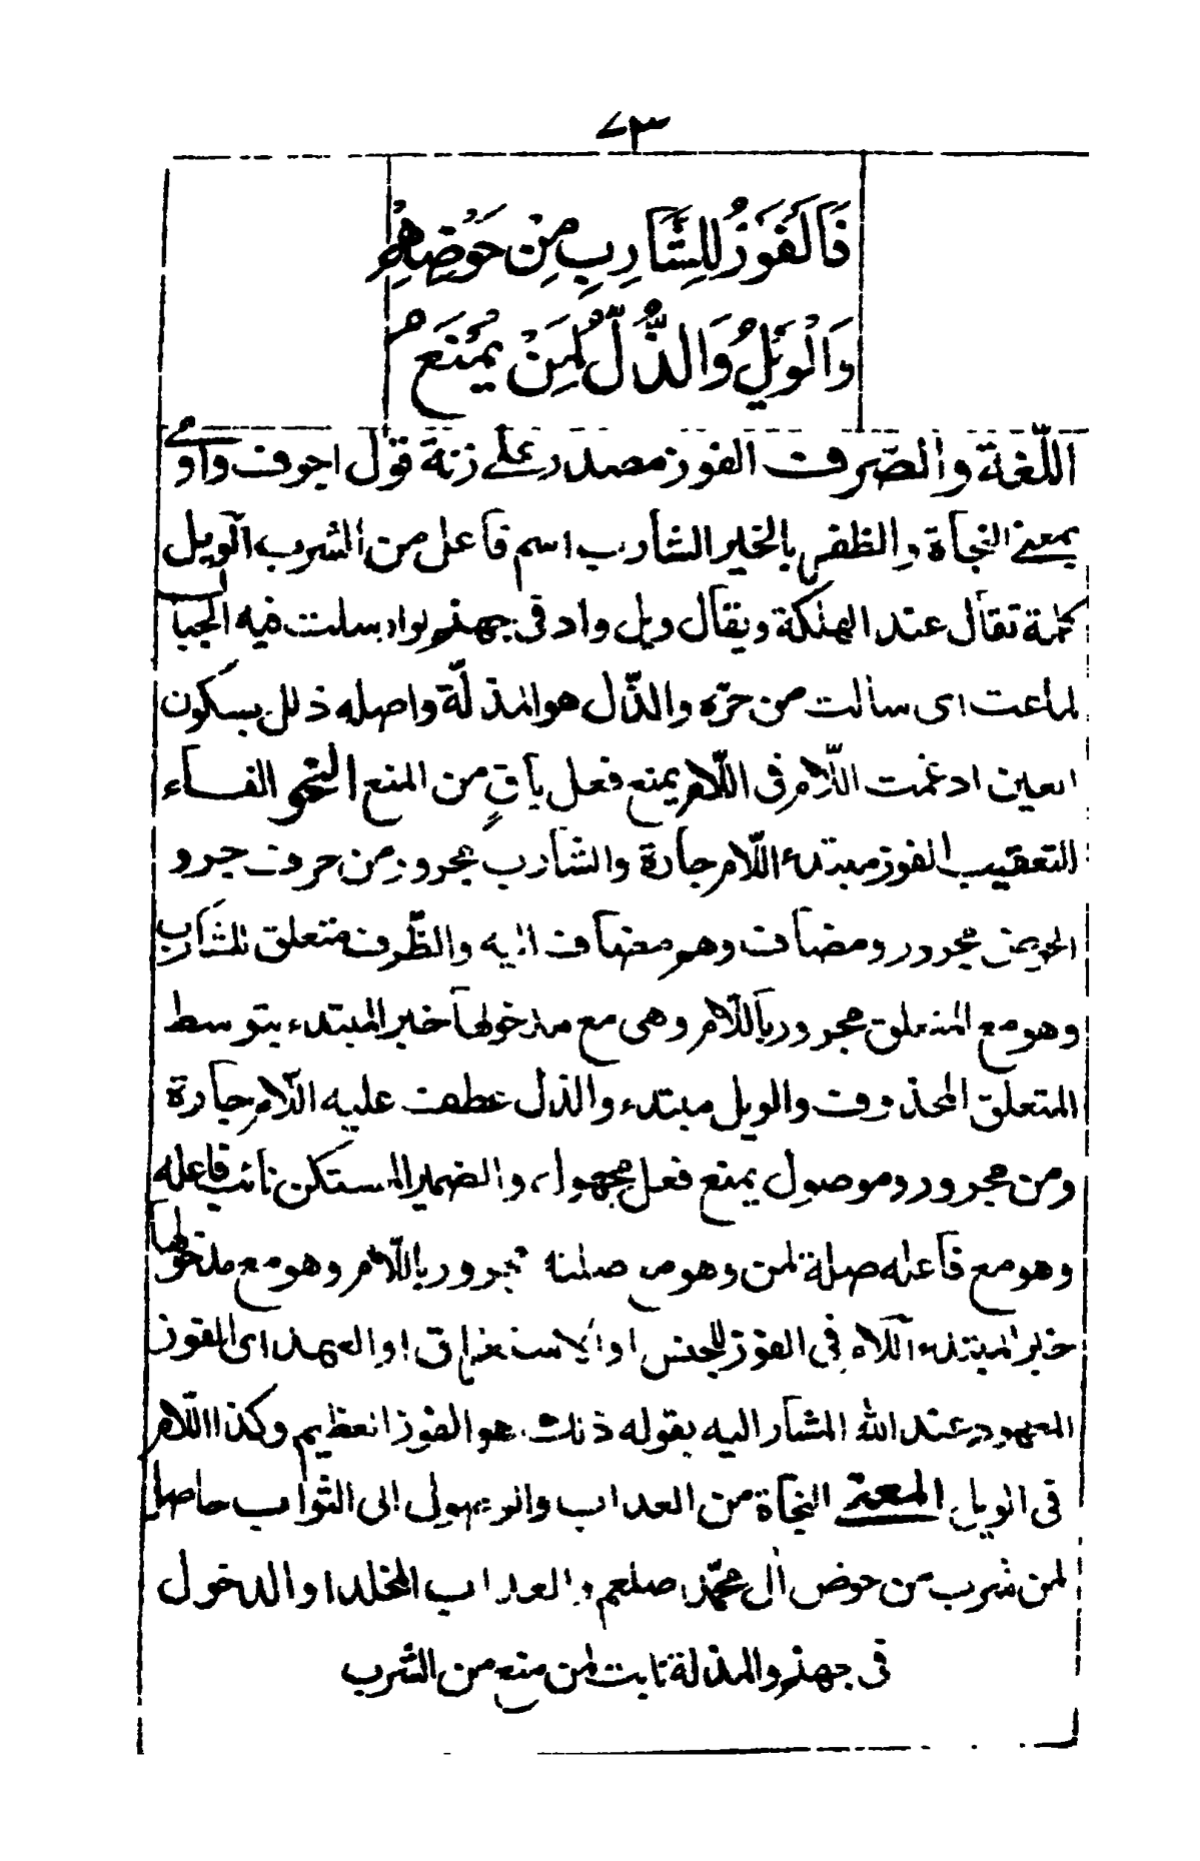 ٧٣
فَالْفَوْزُ لِلشَّارِبِ مِنْ حَوْضِهِمْ
وَالْوَيْلُ وَالذُّلُّ لِمَنْ يُمْنَعُ
اللّغة والصّرف الفوز مصدر على زنة قول اجوف واوى
بمعنى النجاة والظفر بالخير الشارب اسم فاعل من الشرب الويل
كلمة تقال عند الهلكة ويقال ويل واد فى جهنم لو ارسلت فيه الجبال
لماعت اى سالت من حرّه والذّل هو المذلّة واصله ذلل بسكون
العين ادغمت اللّام فى اللّام يمنع فعل باق من المنع النحو الفاء
للتعقيب الفوز مبتدء اللّام جارة والشارب مجرور من حرف جر و
الحوض مجرور ومضاف وهم مضاف اليه والظّرف متعلق للشارب
وهو مع المتعلق مجرور باللّام وهى مع مدخولها خبر المبتدء بتوسط
المتعلق المحذوف والويل مبتدء والذل عطف عليه اللّام جارة
ومن مجرور وموصول يمنع فعل مجهول والضمير المستكن نائب فاعله
وهو مع فاعله صلة لمن وهو مع صلته مجرور باللّام وهو مع مدخولها
خبر المبتدء اللام فى الفوز للجنس او الاستغراق او العهد اى الفوز
المعهود عند الله المشار اليه بقوله ذلك هو الفوز العظيم وكذا اللّام
فى الويل المعنى النجاة من العذاب والوصول الى الثواب حاصل
لمن شرب من حوض ال محمّد صلعم والعذاب المخلد او الدخول
فى جهنم والمذلة ثابت لمن منع من الشرب